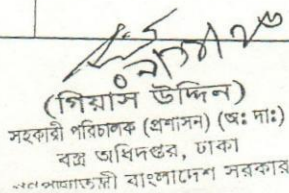 (গিয়াস উদ্দিন)
সহকারী পরিচালক (প্রশাসন) (অ: দা:)
বস্ত্র অধিদপ্তর, ঢাকা
গণপ্রজাতন্ত্রী বাংলাদেশ সরকার